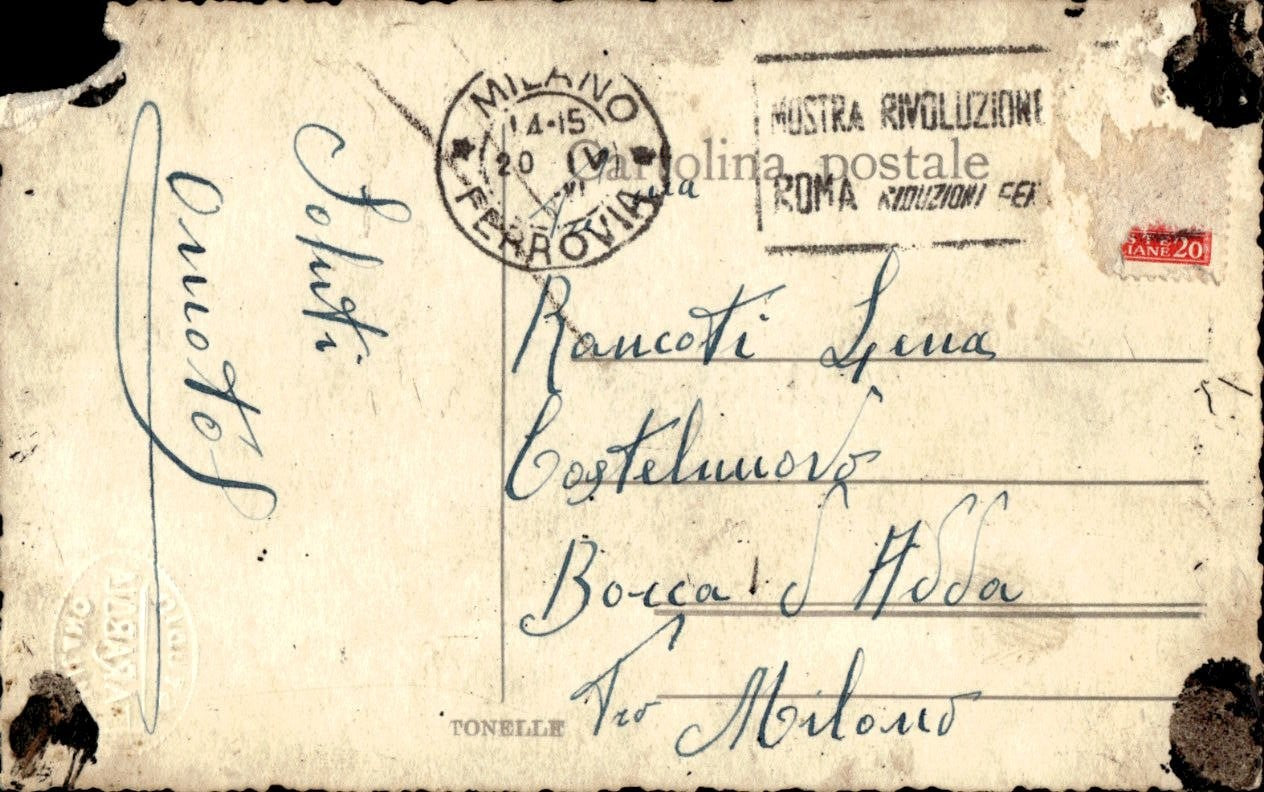 MILANO
14-15
20 IV
XI
FERROVIA
MOSTRA RIVOLUZIONE
ROMA RIDUZIONI FER
Cartolina postale
IANE 20
Rancati Lena
Castelnuovo
Bocca d'Adda
Pro Milano
Saluti
TONELLE
MILANO